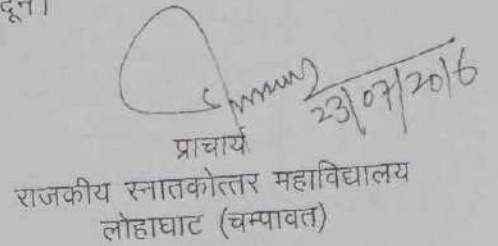 दून।
23/07/2016
प्राचार्य
राजकीय स्नातकोत्तर महाविद्यालय
लोहाघाट (चम्पावत)